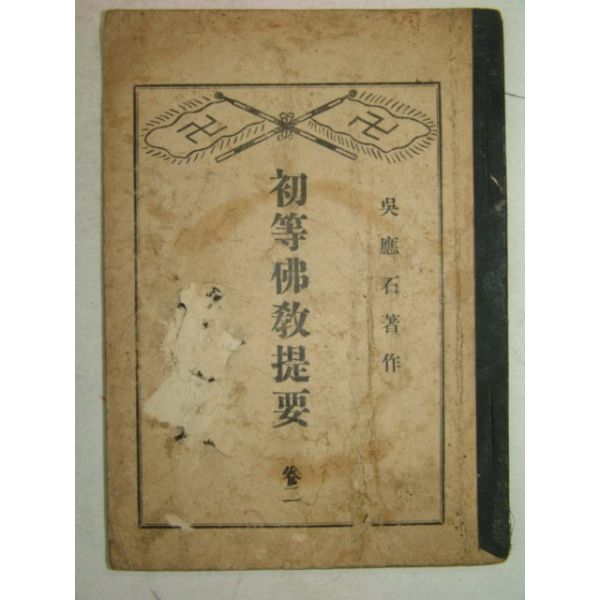 卍 卍
吳應石著作
初等佛教提要
卷二